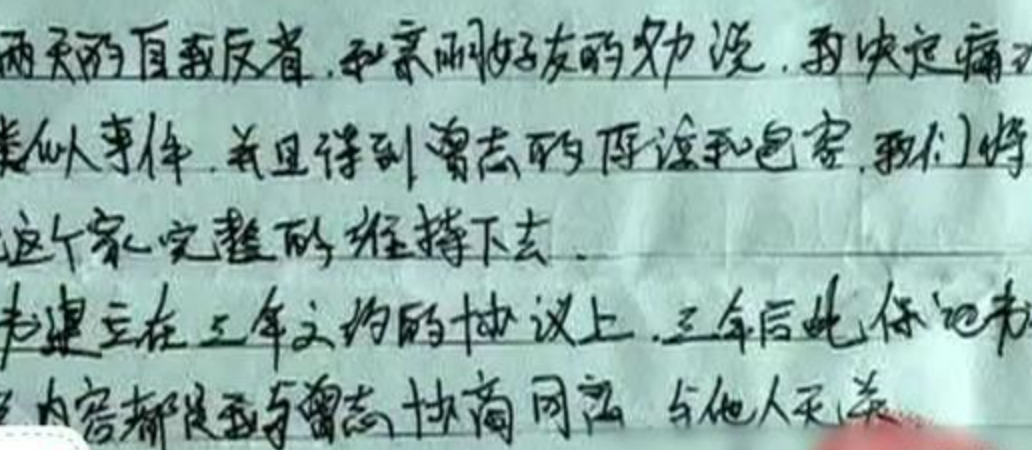 两天的自我反省.和亲朋好友的劝说.我决定痛
类似事件.并且得到曾志的原谅和包容.我们将
这个家完整的维持下去.
书建立在三年之约的协议上.三年后此保证书
内容都是我与曾志协商同意 与他人无关